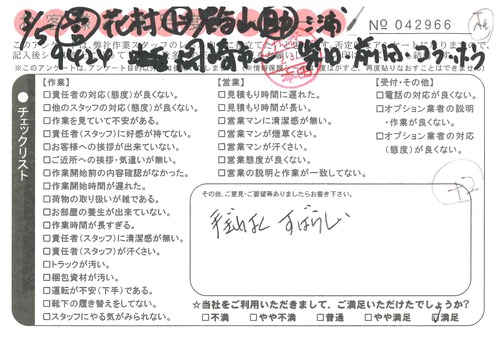 8/5 営 花村 作 磯山 助 三浦
No 042966
岡崎市
【作業】
□責任者の対応(態度)が良くない。
□他のスタッフの対応(態度)が良くない。
□作業を見ていて不安がある。
□責任者(スタッフ)に好感が持てない。
□お客様への挨拶が出来ていない。
□ご近所への挨拶・気遣いが無い。
□作業開始前の内容確認がなかった。
□作業開始時間が遅れた。
□荷物の取り扱いが雑である。
□お部屋の養生が出来ていない。
□作業時間が長すぎる。
□責任者(スタッフ)に清潔感が無い。
□責任者(スタッフ)が汗くさい。
□トラックが汚い。
□梱包資材が汚い。
□運転が不安(下手)である。
□靴下の履き替えをしてない。
□スタッフにやる気がみられない。
【営業】
□見積もり時間に遅れた。
□見積もり時間が長い。
□営業マンに清潔感が無い。
□営業マンが煙草くさい。
□営業マンが汗くさい。
□営業態度が良くない。
□営業の説明と作業が一致してない。
【受付・その他】
□電話の対応が良くない。
□オプション業者の説明
・作業が良くない。
□オプション業者の対応
(態度)が良くない。
チェックリスト
その他、ご意見・ご要望等ありましたらお書き下さい。
すばらしい
☆当社をご利用いただきまして、ご満足いただけたでしょうか?
□不満 □やや不満 □普通 □やや満足 □満足